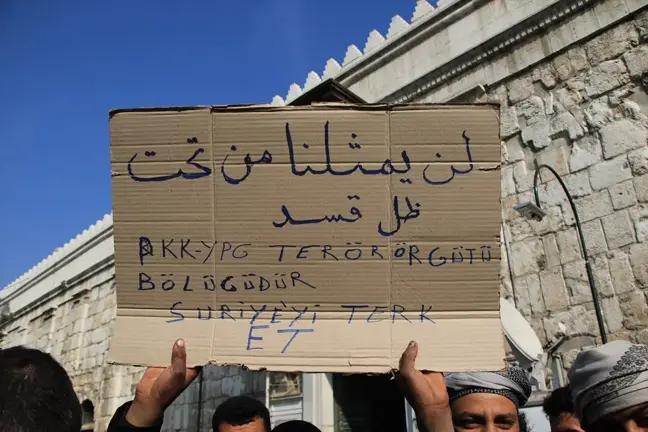 لن يمثلنا من تحت
ظل قسد
PKK-YPG TERÖR ÖRGÜTÜ
BÖLÜGÜDÜR
SURİYE'Yİ TERK
ET